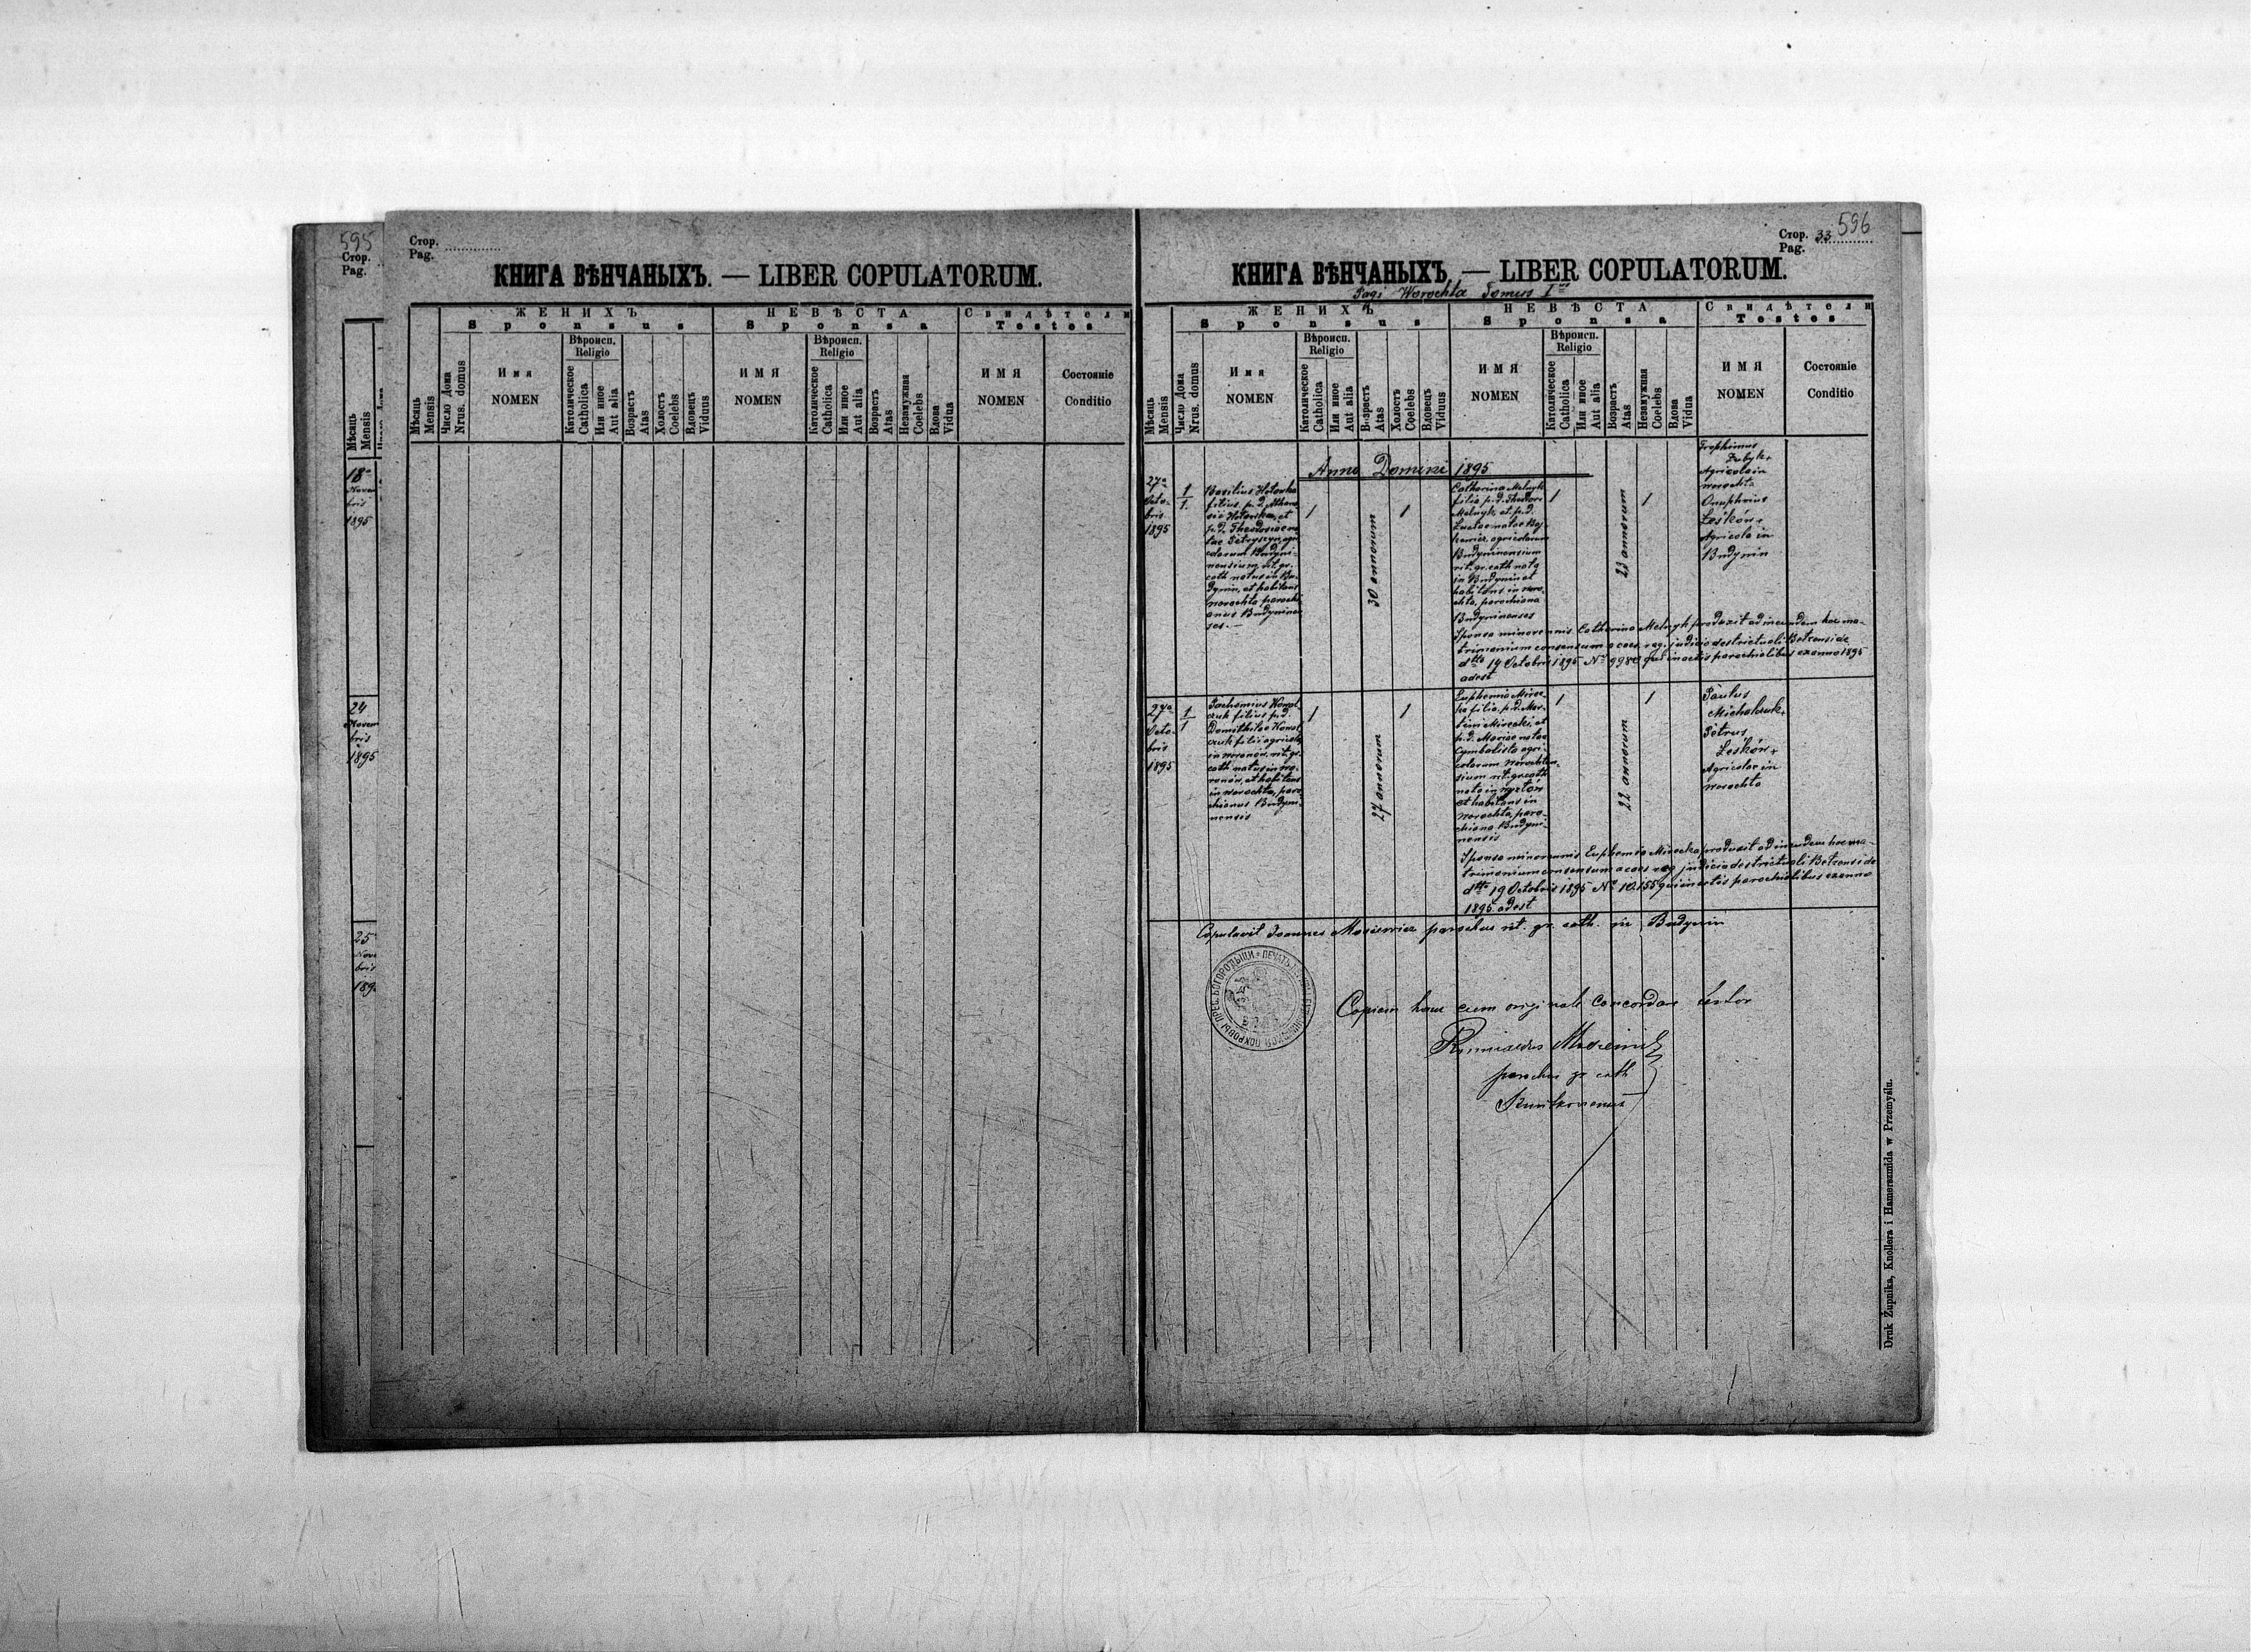 595
Стор.
Pag.
Мѣсяць
Mensis
18
Novem
bris
1895
24
Novem
bris
1895
25
Nov
bris
189
Стор.
Pag.
КНИГА ВѢНЧАНЫХЪ. — LIBER COPULATORUM.
Мѣсяць
Mensis
Число Дома
Nrus. domus
ЖЕНИХЪ
Sponsus
Имя
NOMEN
Вѣроисп.
Religio
Католическое
Catholica
Или иное
Aut alia
Возрастъ
Atas
Холостъ
Coelebs
Вдовецъ
Viduus
НЕВѢСТА
Sponsa
ИМЯ
NOMEN
Вѣроисп.
Religio
Католическое
Catholica
Или иное
Aut alia
Возрастъ
Atas
Незамужная
Coelebs
Вдова
Vidua
Свидѣтели
Testes
ИМЯ
NOMEN
Состояніе
Conditio
596
Стор. 33
Pag.
КНИГА ВѢНЧАНЫХЪ. — LIBER COPULATORUM.
Pagi Worochta Tomus I
Мѣсяць
Mensis
Число Дома
Nrus. domus
ЖЕНИХЪ
Sponsus
Имя
NOMEN
Вѣроисп.
Religio
Католическое
Catholica
Или иное
Aut alia
Возрастъ
Atas
Холостъ
Coelebs
Вдовецъ
Viduus
НЕВѢСТА
Sponsa
ИМЯ
NOMEN
Вѣроисп.
Religio
Католическое
Catholica
Или иное
Aut alia
Возрастъ
Atas
Незамужная
Coelebs
Вдова
Vidua
Свидѣтели
Testes
ИМЯ
NOMEN
Состояніе
Conditio
Anno Domini 1895
27
Octo-
bris
1895
1
1
Basilius
filius p. d.
et
p. d. Theodosiae na-
tae
Budyni-
nensium rit. gr.
cath natus in Bu-
dynin, et habitans
Worochta parochi
anus Budyninen
ses.—
1
30 annorum
1
Catharina Melnyk
filia p. d. Theodori
Melnyk et p. d.
natae
agricolarum
Budyninensium
rit. gr. cath nata
in Budynin et
habitans in Woro-
chta, parochiana
Budyninenses
1
23 annorum
1
Trophimus
Zubyk +
Agricola in
Worochta
Onuphrius
Leskón +
Agricola in
Budynin
Sponsa minorennis Catharina Melnyk produxit ad ineundem hoc ma-
trimonium consensum a caes. reg. judicio destrictuali Betzensi de
dtto 19 Octobris 1895 No 998 qui in actis parochialibus ex anno 1895
adest
27
Octo-
bris
1895
1
1
Pachomius Kowal
czuk filius p. d.
Domithilae Kowal
czuk filii agricola
in Woronów, rit. gr.
cath natus in Wo-
ronów, et habitans
in Worochta, paro
chianus Budyni-
nensis
1
27 annorum
1
Euphemia Mirec-
ka filia p. d. Mar-
tini Mirecki, et
p. d. Mariae natae
Cymbalista agri-
colarum Worochten
sium rit. gr. cath
nata in
et habitans in
Worochta, paro-
chiana Budyni-
nensis
1
22 annorum
1
Paulus
Michalczuk +
Petrus
Leskón +
Agricolae in
Worochta
Sponsa minorennis Euphemia Mirecka produxit ad ineundem hoc ma-
trimonium consensum a caes reg judicio destrictuali Betzensi de
dtto 19 Octobris 1895 No 10.155 qui in actis parochialibus ex anno
1895 adest
Copulavit Joannes Mosiewicz parochus rit. gr. cath. in Budynin
Copiam hanc cum originali concordare testor
parochus gr cath
Druk Żupnika, Knollera i Hamerszmida w Przemyślu.